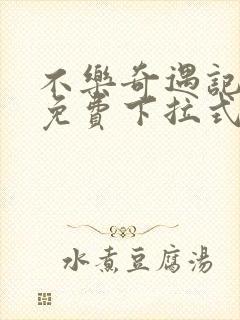 不樂奇遇記
免費下拉式
水煮豆腐湯